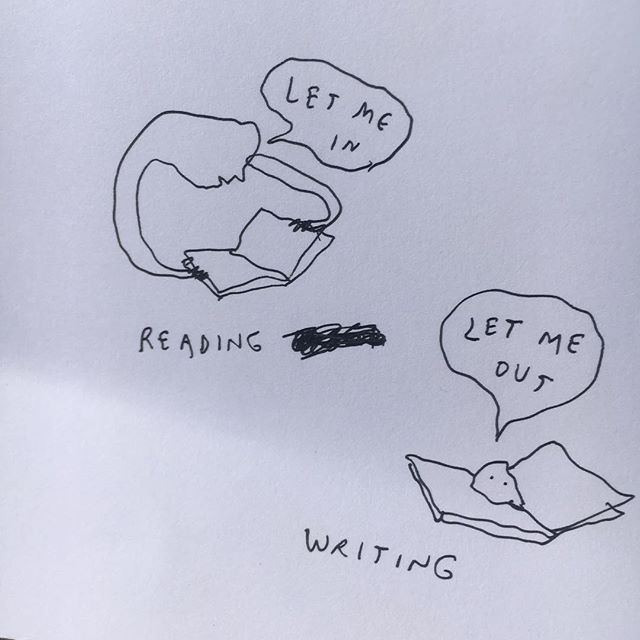 LET ME
IN
READING
LET ME
OUT
WRITING